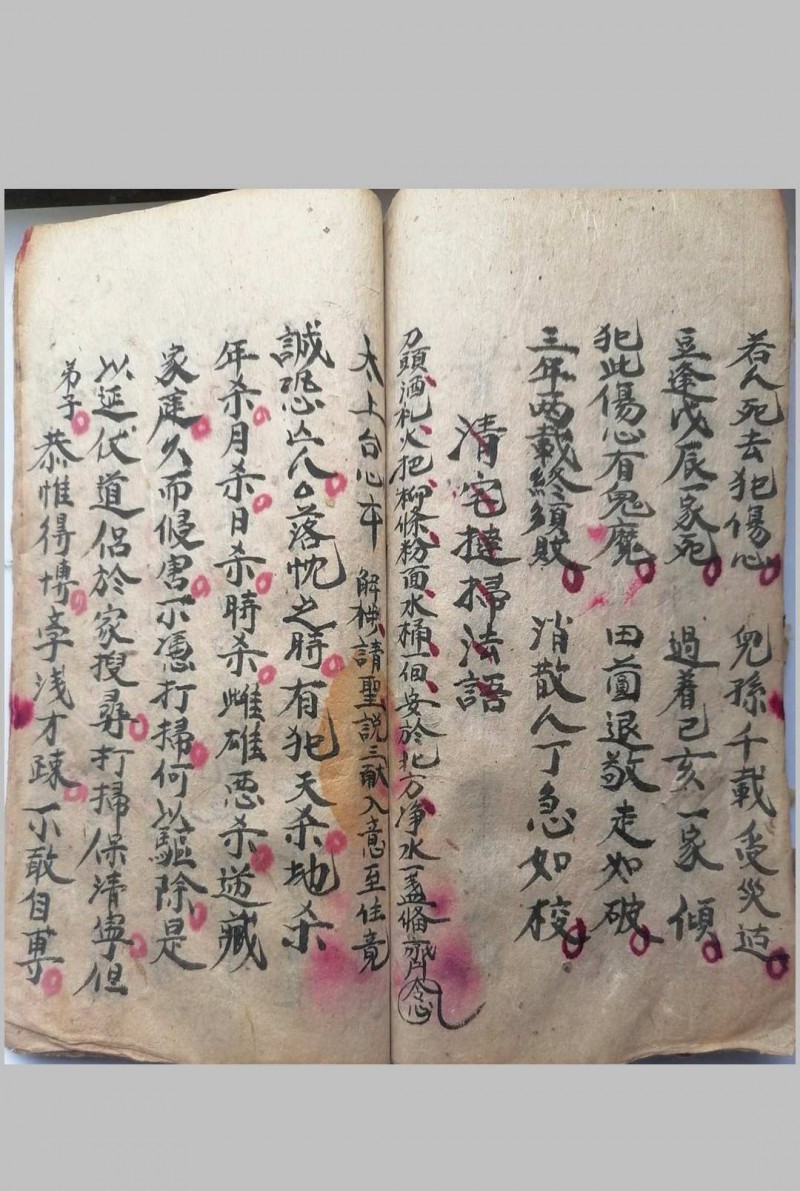 若人死去犯傷心 兒孫千載受災迍
豆逢戊辰一家死 過着己亥一家傾
犯此傷心有鬼魔 田薗退敬走如破
三年両載終須敗 消散人丁急如梭
清宅撻掃法語
刀頭酒礼火把柳條粉面水桶一個安於北方净水一盞俻齊念
太上台心卞 解穢請聖説三献入意至住竟
誠恐亡人落忱之時有犯天杀地杀
年杀月杀日杀時杀雌雄恶杀逆藏
家庭久而侵害不憑打掃何以驅除是
以延伏道侣於家搜尋打掃保清寧但
弟子恭惟得博孝浅才疎不敢自專